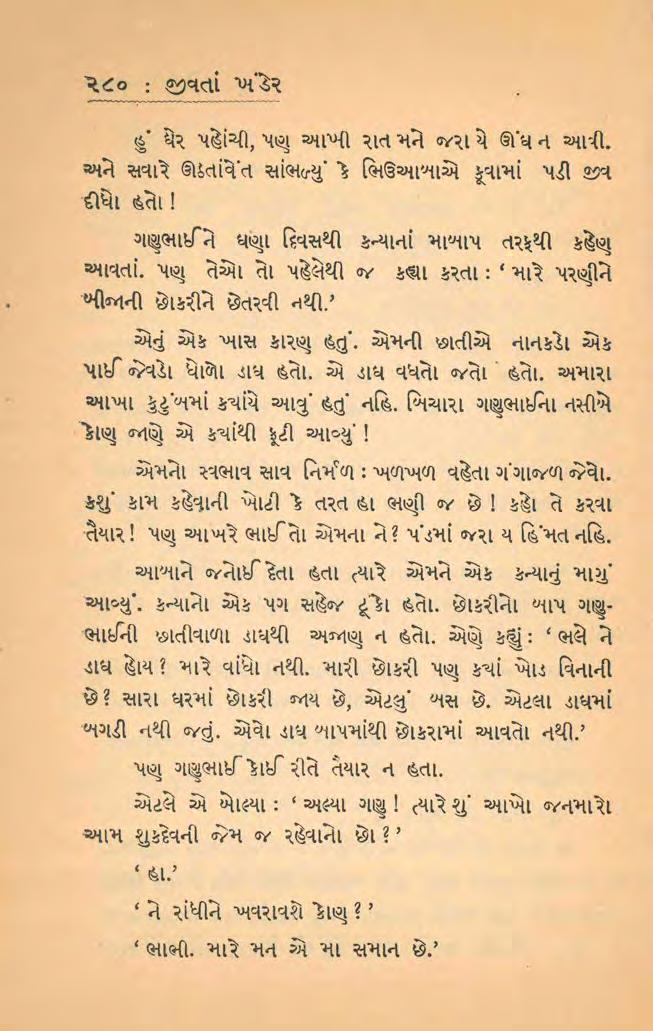 ૨૮૦ : જીવતાં ખંડેર
હું ઘેર પહોંચી, પણ આખી રાત મને જરા યે ઊંઘ ન આવી.
અને સવારે ઊઠતાંવેંત સાંભળ્યું કે ભિઉઆબાએ કૂવામાં પડી જીવ
દીધો હતો !
ગણુભાઈને ઘણા દિવસથી કન્યાનાં માબાપ તરફથી કહેણ
આવતાં. પણ તેઓ તો પહેલેથી જ કહ્યા કરતા : ‘ મારે પરણીને
બીજાની છોકરીને છેતરવી નથી.’
એનું એક ખાસ કારણ હતું. એમની છાતીએ નાનકડો એક
પાઈ જેવડો ધોળો ડાઘ હતો. એ ડાઘ વધતો જતો હતો. અમારા
આખા કુટુંબમાં ક્યાંયે આવું હતું નહિ. બિચારા ગણુભાઈના નસીબે
કોણ જાણે એ ક્યાંથી ફૂટી આવ્યું !
એમનો સ્વભાવ સાવ નિર્મળ : ખળખળ વહેતા ગંગાજળ જેવો.
કશું કામ કહેવાની ખોટી કે તરત હા ભણી જ છે ! કહો તે કરવા
તૈયાર ! પણ આખરે ભાઈ તો એમના ને ? પંડમાં જરા ય હિંમત નહિ.
આબાને જનોઈ દેતા હતા ત્યારે એમને એક કન્યાનું માગું
આવ્યું. કન્યાનો એક પગ સહેજ ટૂંકો હતો. છોકરીનો બાપ ગણુ-
ભાઈની છાતીવાળા ડાઘથી અજાણ ન હતો. એણે કહ્યું : ‘ ભલે ને
ડાઘ હોય ? મારે વાંધો નથી. મારી છોકરી પણ ક્યાં ખોડ વિનાની
છે ? સારા ઘરમાં છોકરી જાય છે, એટલું બસ છે. એટલા ડાઘમાં
બગડી નથી જતું. એવો ડાઘ બાપમાંથી છોકરામાં આવતો નથી.’
પણ ગણુભાઈ કોઈ રીતે તૈયાર ન હતા.
એટલે એ બોલ્યા : ‘ અલ્યા ગણુ ! ત્યારે શું આખો જનમારો
આમ શુકદેવની જેમ જ રહેવાનો છો ? ’
‘ હા.’
‘ ને રાંધીને ખવરાવશે કોણ ? ’
‘ ભાભી. મારે મન એ મા સમાન છે.’